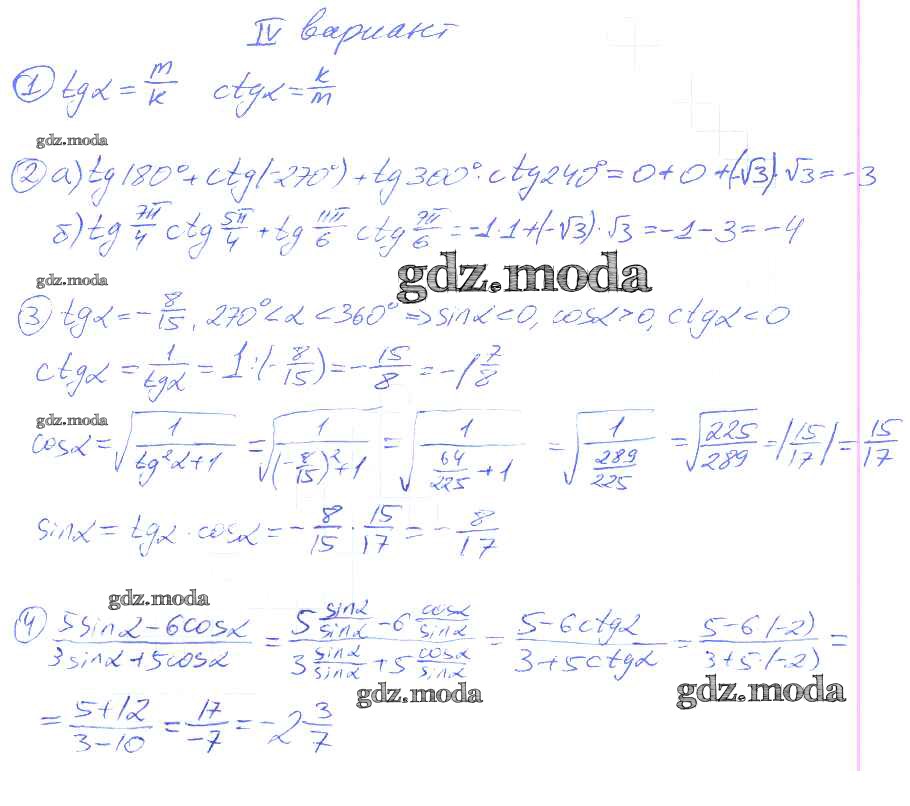 IV вариант
① tgα = m/k ctgα = k/m
gdz.moda
② а) tg180° + ctg(-270°) + tg300° · ctg240° = 0 + 0 + (-√3) · √3 = -3
б) tg 7π/4 ctg 5π/4 + tg 11π/6 ctg 7π/6 = -1·1 + (-√3) · √3 = -1 - 3 = -4
gdz.moda
gdz.moda
③ tgα = -8/15, 270° < α < 360° ⇒ sinα < 0, cosα > 0, ctgα < 0
ctgα = 1/tgα = 1 : (-8/15) = -15/8 = -1 7/8
gdz.moda
cosα = √(1/(tg²α+1)) = √(1/((-8/15)²+1)) = √(1/(64/225 + 1)) = √(1/(289/225)) = √(225/289) = |15/17| = 15/17
sinα = tgα · cosα = -8/15 · 15/17 = -8/17
gdz.moda
④ (5sinα - 6cosα)/(3sinα + 5cosα) = (5 sinα/sinα - 6 cosα/sinα)/(3 sinα/sinα + 5 cosα/sinα) = (5 - 6ctgα)/(3 + 5ctgα) = (5 - 6·(-2))/(3 + 5·(-2)) =
gdz.moda
gdz.moda
= (5+12)/(3-10) = 17/-7 = -2 3/7